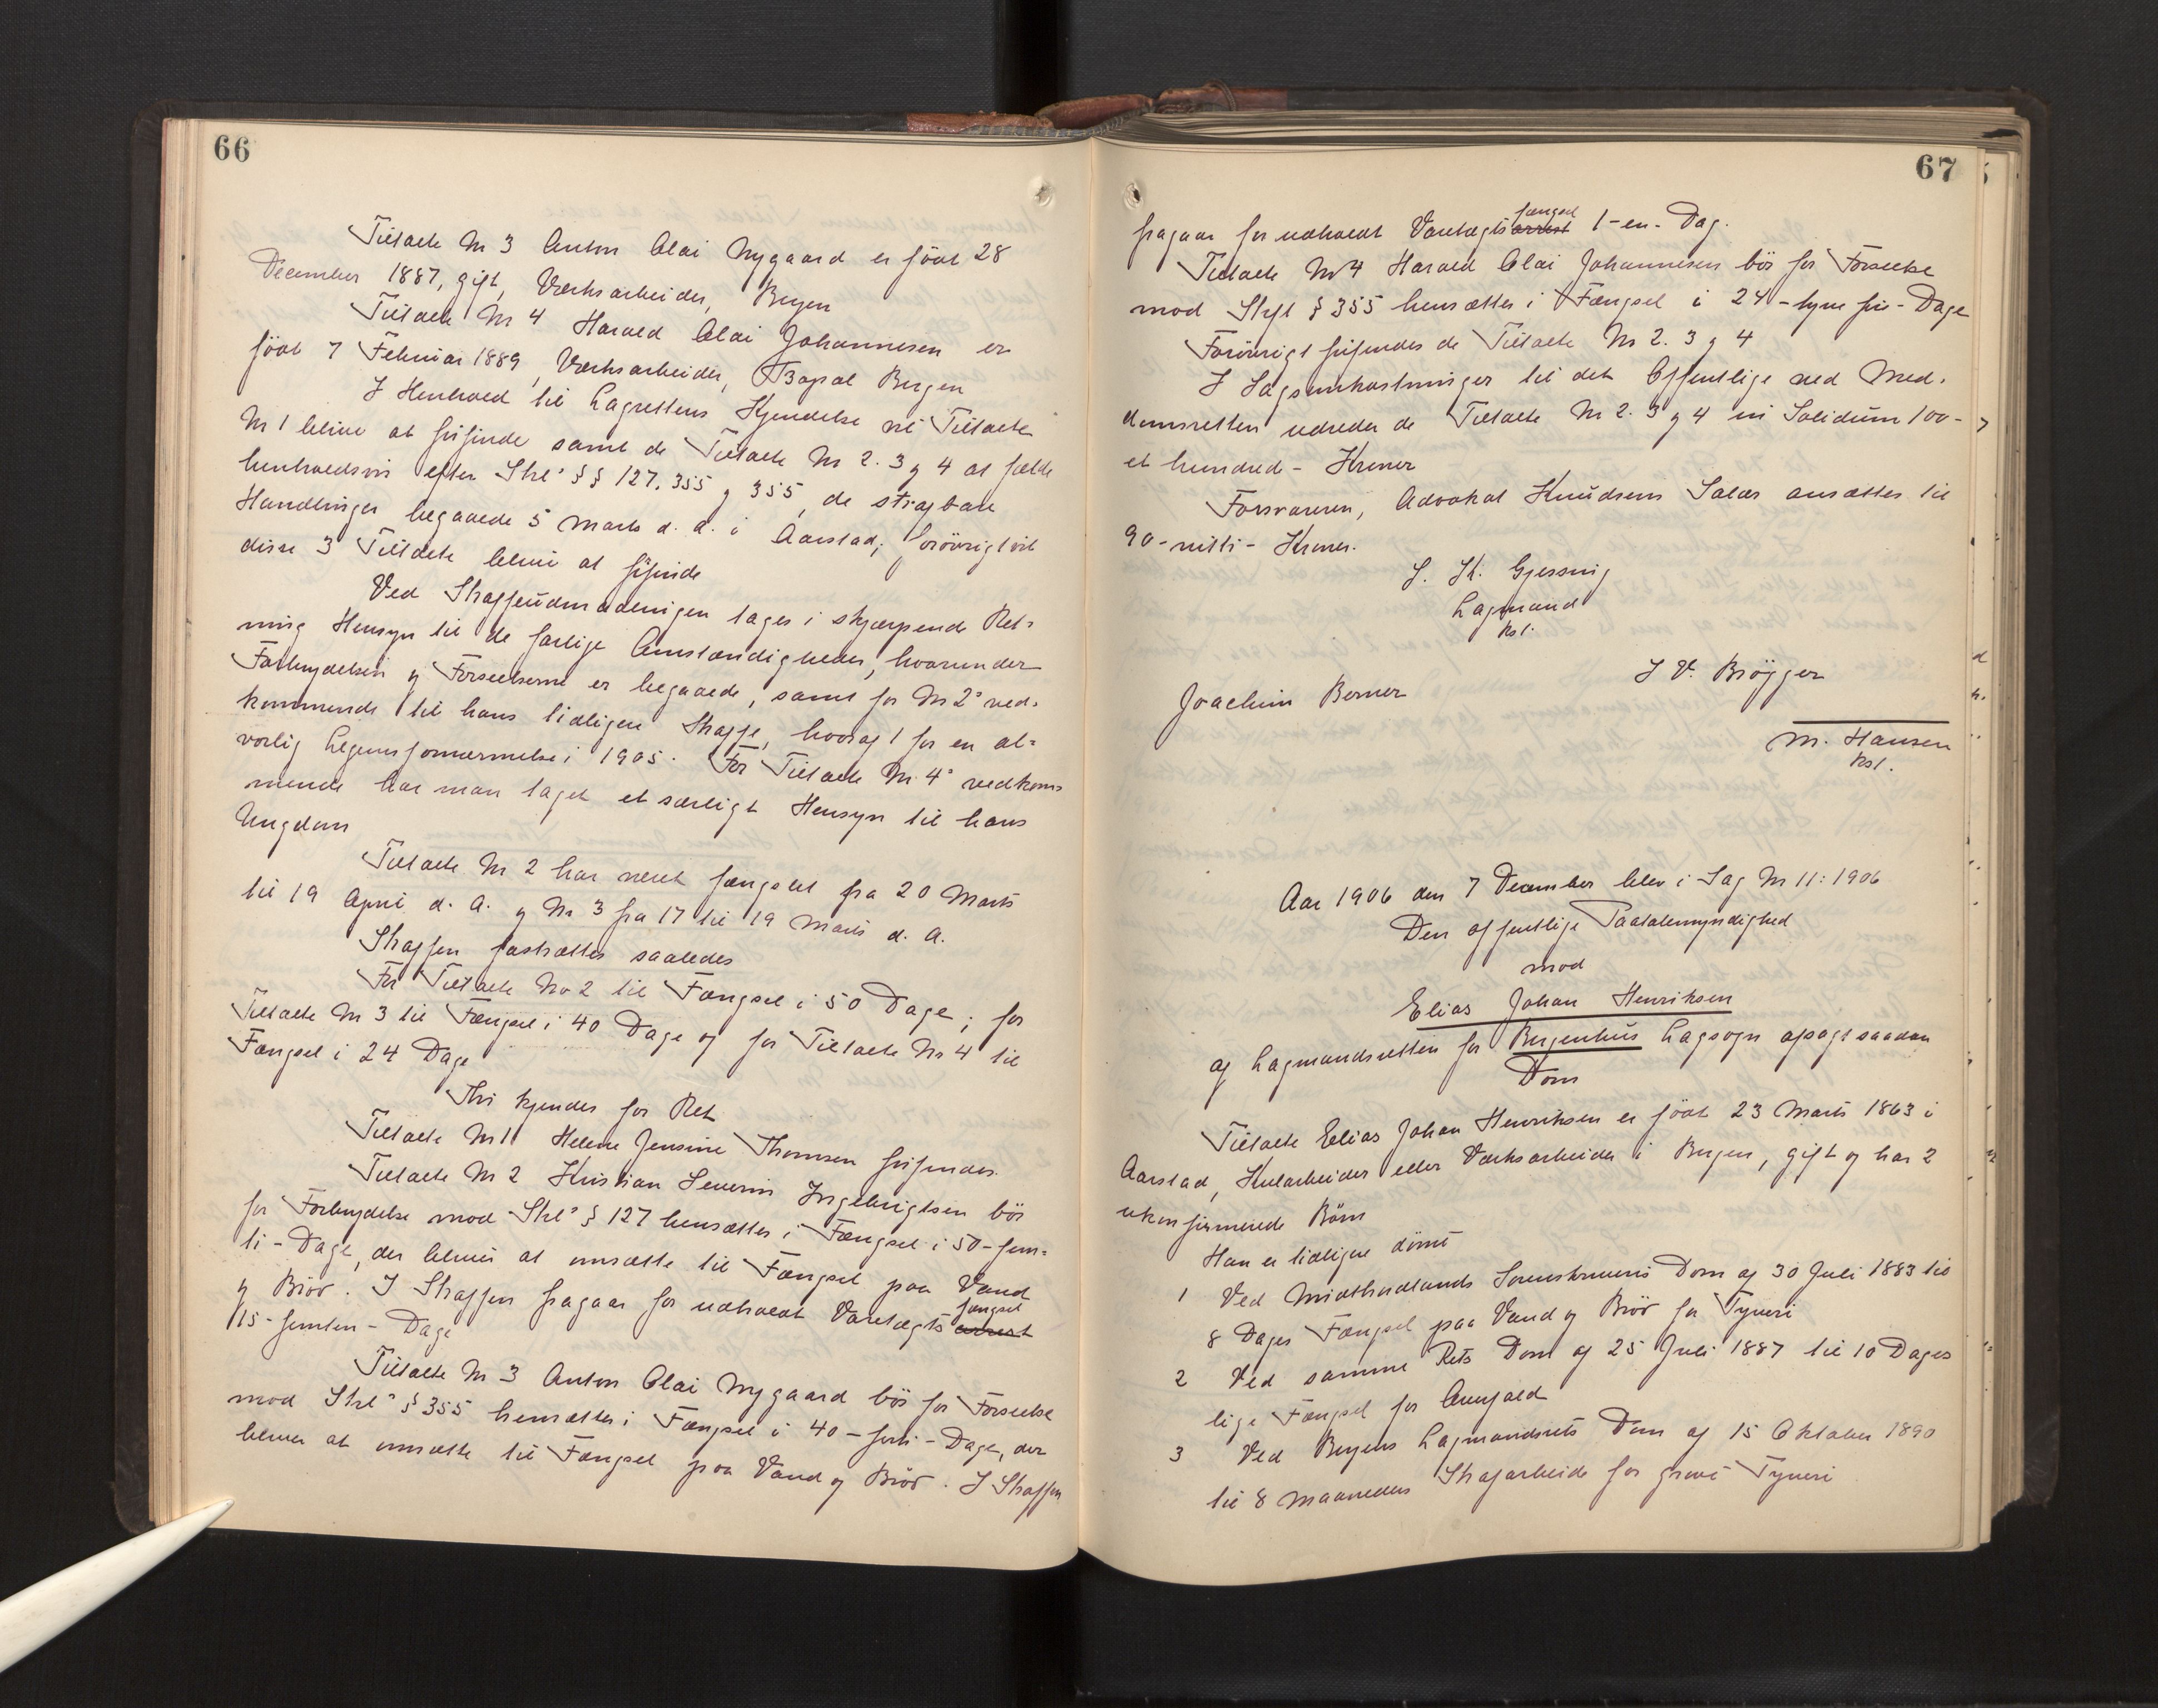 66
Tiltalte Nr 3 Anton Olai Nygaard er född 28
December 1887, gift, Værksarbeider, Bergen
Tiltalte Nr 4 Harald Olai Johannesen er
född 7 Februar 1889, Værksarbeider, Bopæl Bergen
I Henhold til Lagrettens Kjendelse vil Tiltalte
Nr 1 blive at frifinde samt de Tiltalte Nr 2. 3 og 4 at fælde
henholdsvis efter Strl's §§ 127, 355 og 355, de strafbare
Handlinger begaaede 5 Marts d. A. i Aarstad; forövrigt vil
disse 3 Tiltalte blive at frifinde
Ved Straffeudmaalingen tages i skjærpende Ret-
ning Hensyn til de farlige Omstændigheder, hvorunder
Forbrydelsen og Forseelserne er begaaede, samt for Nr 2's ved-
kommende til hans tidligere Straffe, hvoraf 1 for en al-
vorlig Legemsfornærmelse i 1905. For Tiltalte Nr. 4's vedkom-
mende har man taget et særligt Hensyn til hans
Ungdom
Tiltalte Nr 2 har været fængslet fra 20 Marts
til 19 April d. A. og Nr 3 fra 17 til 19 Marts d. A.
Straffen fastsættes saaledes
For Tiltalte No 2 til Fængsel i 50 Dage; for
Tiltalte Nr 3 til Fængsel i 40 Dage og for Tiltalte Nr 4 til
Fængsel i 24 Dage
Thi kjendes for Ret
Tiltalte Nr 1 Helene Jensine Thomsen frifindes.
Tiltalte Nr 2 Kristian Severin Ingebrigtsen bör
for Forbrydelse mod Strl's § 127 hensættes i Fængsel i 50-fem-
ti-Dage, der bliver at omsætte til Fængsel paa Vand
og Bröd. I Straffen fragaar for udholdt Varetægts fængsel arrest
15-femten-Dage
Tiltalte Nr 3 Anton Olai Nygaard bör for Forseelse
mod Strl's § 355 hensættes i Fængsel i 40-forti-Dage, der
bliver at omsætte til Fængsel paa Vand og Bröd. I Straffen
67
fragaar for udholdt Varetægts fængsel arrest 1-en-Dag.
Tiltalte No 4 Harald Olai Johannesen bör for Forseelse
mod Strfl § 355 hensættes i Fængsel i 24-tyve fire-Dage
Forövrigt frifindes de Tiltalte Nr 2. 3 og 4
I Sagsomkostninger til det Offentlige ved Med-
domsretten udreder de Tiltalte Nr 2. 3 og 4 in Solidum 100-
et hundred-Kroner
Forsvareren, Advokat Knudsens Salær ansættes til
90-nitti-Kroner.
S. K. Gjessing
Lagmand
kst.
J V. Brögger
Joachim Berner
M. Hansen
kst.
Aar 1906 den 7 December blev i Sag Nr 11: 1906
Den offentlige Paatalemyndighed
mod
Elias Johan Henriksen
af Lagmandsretten for Bergenhus Lagsogn afsagt saadan
Dom
Tiltalte Elias Johan Henriksen er född 23 Marts 1863 i
Aarstad, Kularbeider eller Værksarbeider i Bergen, gift og har 2
ukonfirmerede Börn
Han er tidligere dömt
1 Ved Midthordlands Sorenskriveris Dom af 30 Juli 1883 til
8 Dages Fængsel paa Vand og Bröd for Tyveri
2 Ved samme Rets Dom af 25 Juli 1887 til 10 Dages
lige Fængsel for Overfald
3 Ved Bergens Lagmandsrets Dom af 15 Oktober 1890
til 8 Maaneders Strafarbeide for grovt Tyveri